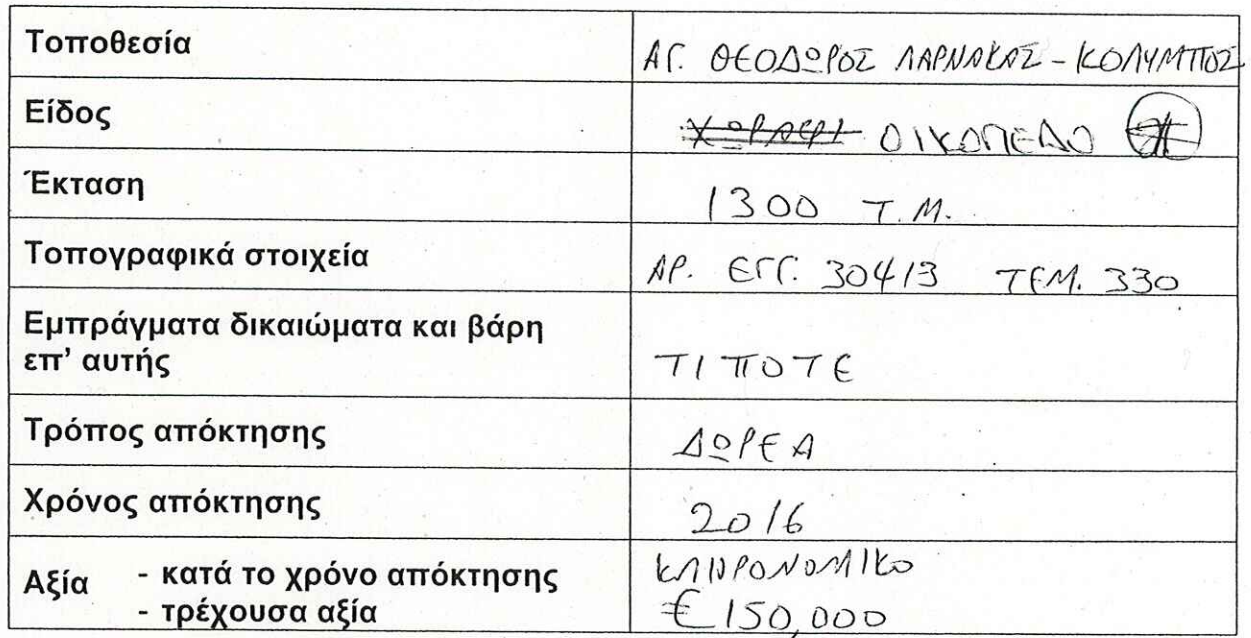 Τοποθεσία ΑΓ. ΘΕΟΔΩΡΟΣ ΛΑΡΝΑΚΑΣ - ΚΟΛΥΜΠΟΣ
Είδος ΧΩΡΑΦΙ ΟΙΚΟΠΕΔΟ
Έκταση 1300 Τ.Μ.
Τοπογραφικά στοιχεία ΑΡ. ΕΓΓ. 30413 ΤΕΜ. 330
Εμπράγματα δικαιώματα και βάρη
επ' αυτής ΤΙΠΟΤΕ
Τρόπος απόκτησης ΔΩΡΕΑ
Χρόνος απόκτησης 2016
Αξία - κατά το χρόνο απόκτησης ΚΛΗΡΟΝΟΜΙΚΟ
- τρέχουσα αξία €150,000